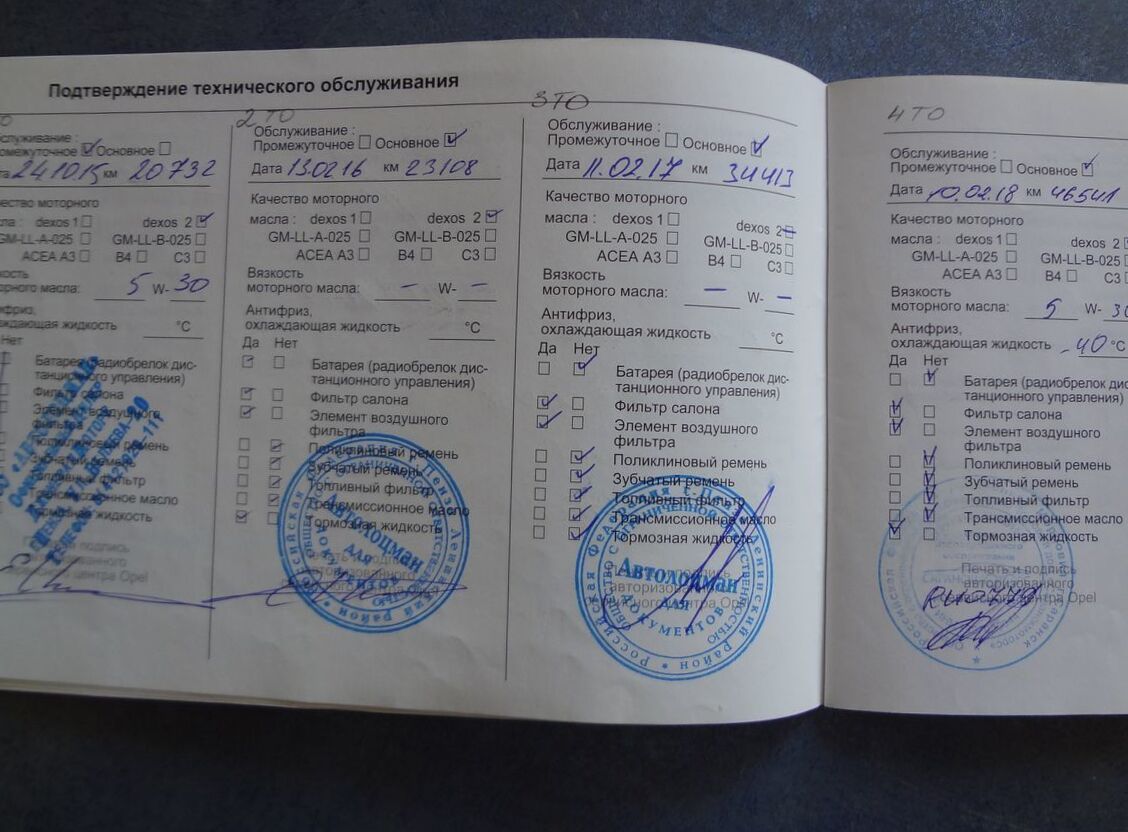 Подтверждение технического обслуживания
Основное
24.10.15 км 20732
dexos 2
GM-LL-A-025 GM-LL-B-025
ACEA A3 B4 C3
5 W-30
°C
Нет
Батарея (радиобрелок дис-
танционного управления)
Фильтр салона
Элемент воздушного
фильтра
Поликлиновый ремень
Зубчатый ремень
Топливный фильтр
Трансмиссионное масло
Тормозная жидкость
центра Opel
2 ТО
Обслуживание :
Промежуточное Основное
Дата 13.02.16 км 23108
Качество моторного
масла : dexos 1 dexos 2
GM-LL-A-025 GM-LL-B-025
ACEA A3 B4 C3
Вязкость
моторного масла: – W- –
Антифриз,
охлаждающая жидкость °C
Да Нет
Батарея (радиобрелок дис-
танционного управления)
Фильтр салона
Элемент воздушного
фильтра
Поликлиновый ремень
Зубчатый ремень
Топливный фильтр
Трансмиссионное масло
Тормозная жидкость
Автолоцман
для
документов
3 ТО
Обслуживание :
Промежуточное Основное
Дата 11.02.17 км 34413
Качество моторного
масла : dexos 1 dexos 2
GM-LL-A-025 GM-LL-B-025
ACEA A3 B4 C3
Вязкость
моторного масла: – W- –
Антифриз,
охлаждающая жидкость °C
Да Нет
Батарея (радиобрелок дис-
танционного управления)
Фильтр салона
Элемент воздушного
фильтра
Поликлиновый ремень
Зубчатый ремень
Топливный фильтр
Трансмиссионное масло
Тормозная жидкость
Автолоцман
для
документов
4 ТО
Обслуживание :
Промежуточное Основное
Дата 10.02.18 км 46541
Качество моторного
масла : dexos 1 dexos 2
GM-LL-A-025 GM-LL-B-025
ACEA A3 B4 C3
Вязкость
моторного масла: 5 W- 30
Антифриз,
охлаждающая жидкость -40 °C
Да Нет
Батарея (радиобрелок дис-
танционного управления)
Фильтр салона
Элемент воздушного
фильтра
Поликлиновый ремень
Зубчатый ремень
Топливный фильтр
Трансмиссионное масло
Тормозная жидкость
Печать и подпись
авторизованного
сервисного центра Opel